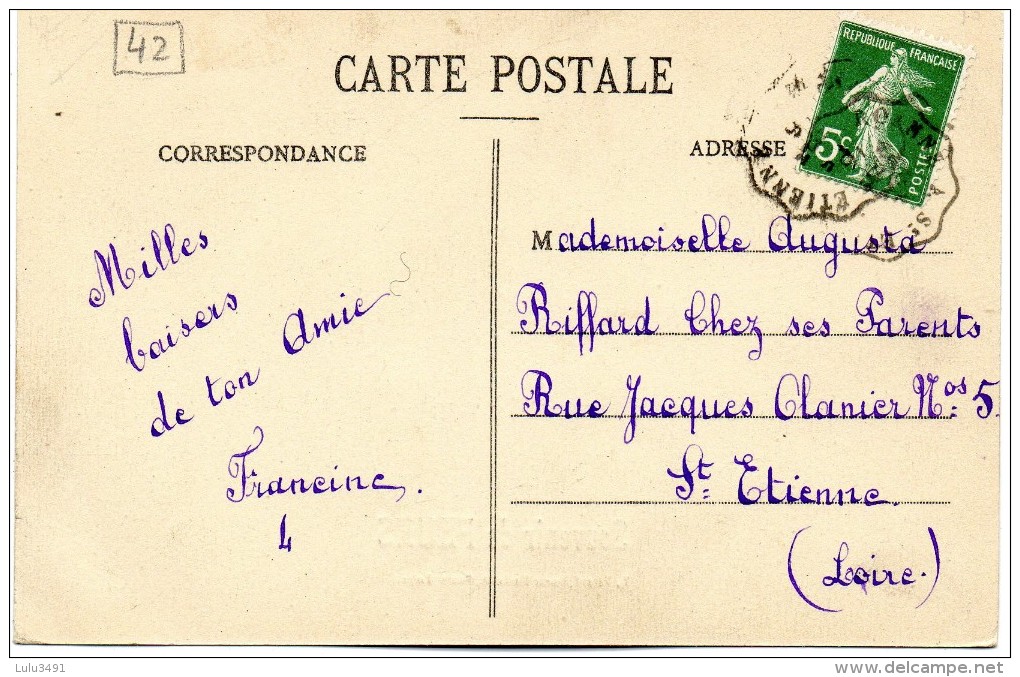 42
CARTE POSTALE
CORRESPONDANCE
ADRESSE
REPUBLIQUE FRANÇAISE
5c
POSTES
ETIENNE
Milles
baisers
de ton Amie
Francine
4
Mademoiselle Augusta
Riffard Chez ses Parents
Rue Jacques Clanier Nos 5.
St Etienne.
(Loire.)
Lulu3491
www.delcampe.net